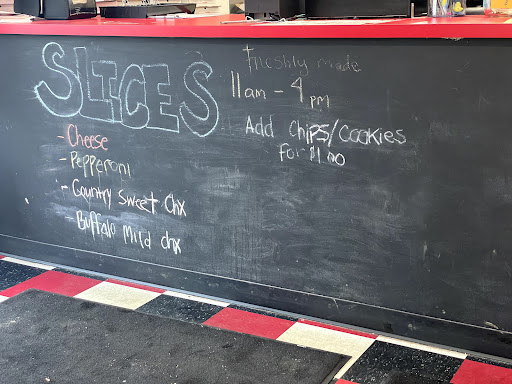 SLICES
- Cheese
- Pepperoni
- Country Sweet chx
- Buffalo Mild chx
Freshly made
11am - 4pm
Add Chips/Cookies
For $1.00